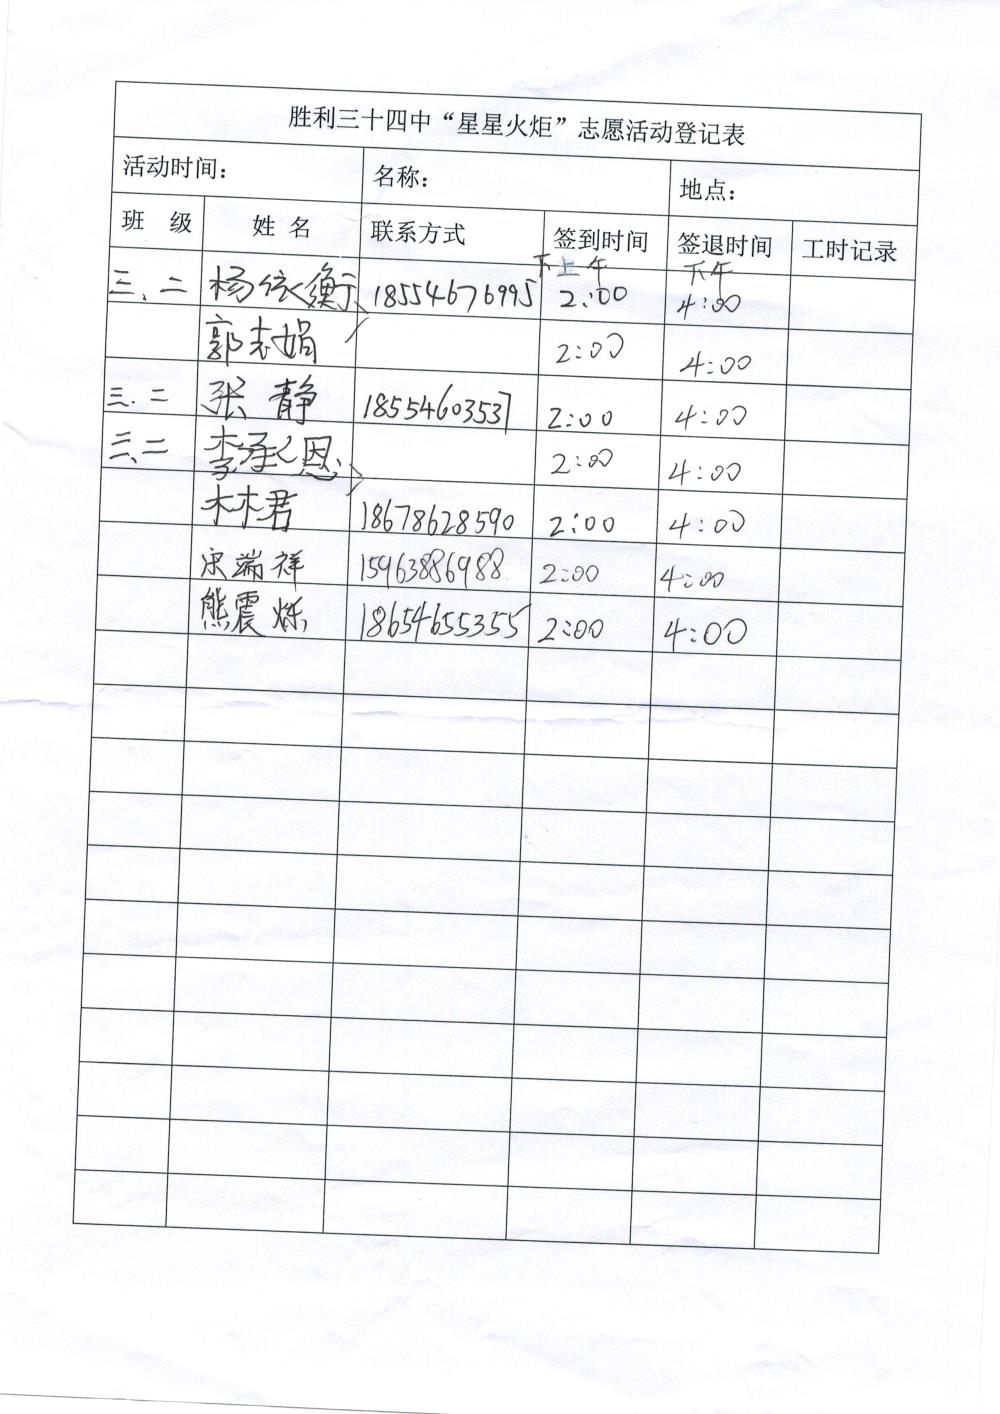 胜利三十四中“星星火炬”志愿活动登记表
活动时间： 名称： 地点：
班 级 姓 名 联系方式 签到时间 签退时间 工时记录
下上午 下午
三、二 杨依衡 18554676995 2:00 4:00
郭志娟 2:00 4:00
三.二 张静 18554603537 2:00 4:00
三、二 李承恩 2:00 4:00
林君 18678628590 2:00 4:00
宋端祥 15963886988 2:00 4:00
熊震烁 18654655355 2:00 4:00